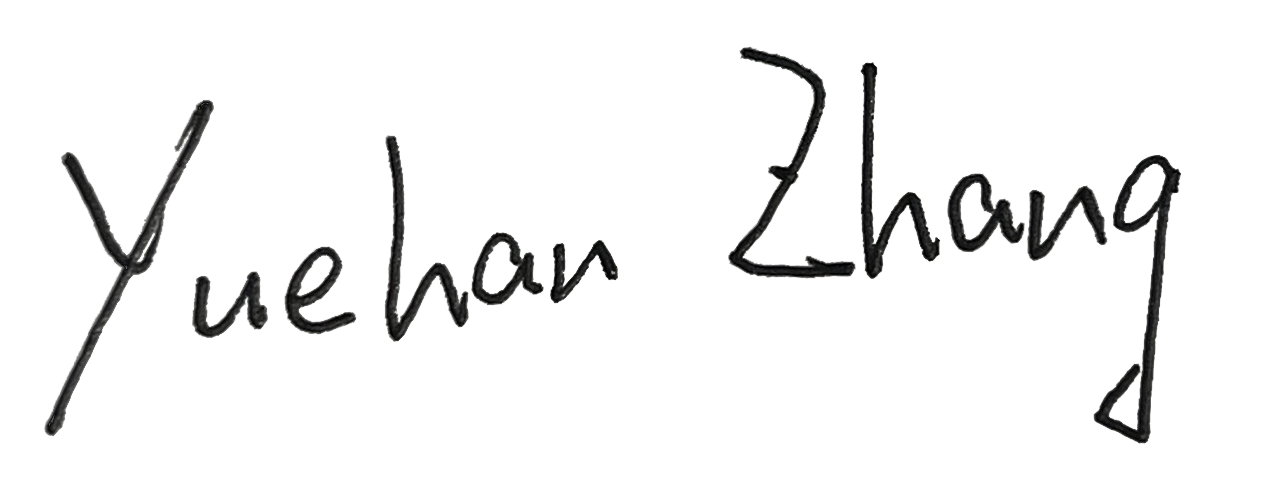 Yuehan Zhang